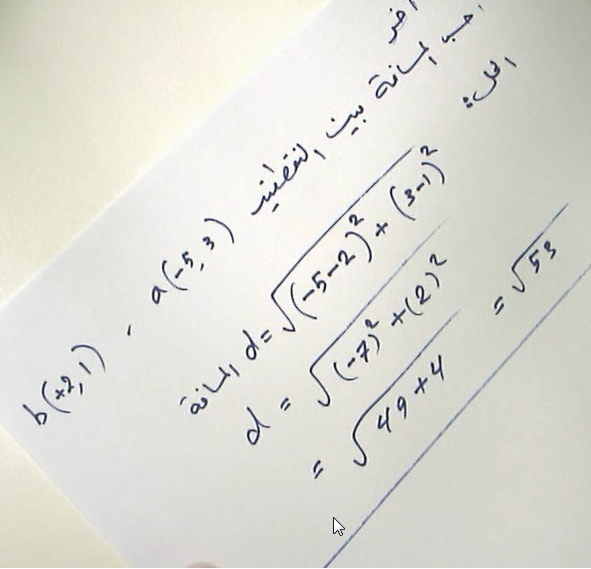 احسب المسافة بين النقطتين a(-5,3) , b(+2,1)
الحل:
المسافة d = √(-5-2)² + (3-1)²
d = √(-7)² + (2)²
= √49+4 = √53